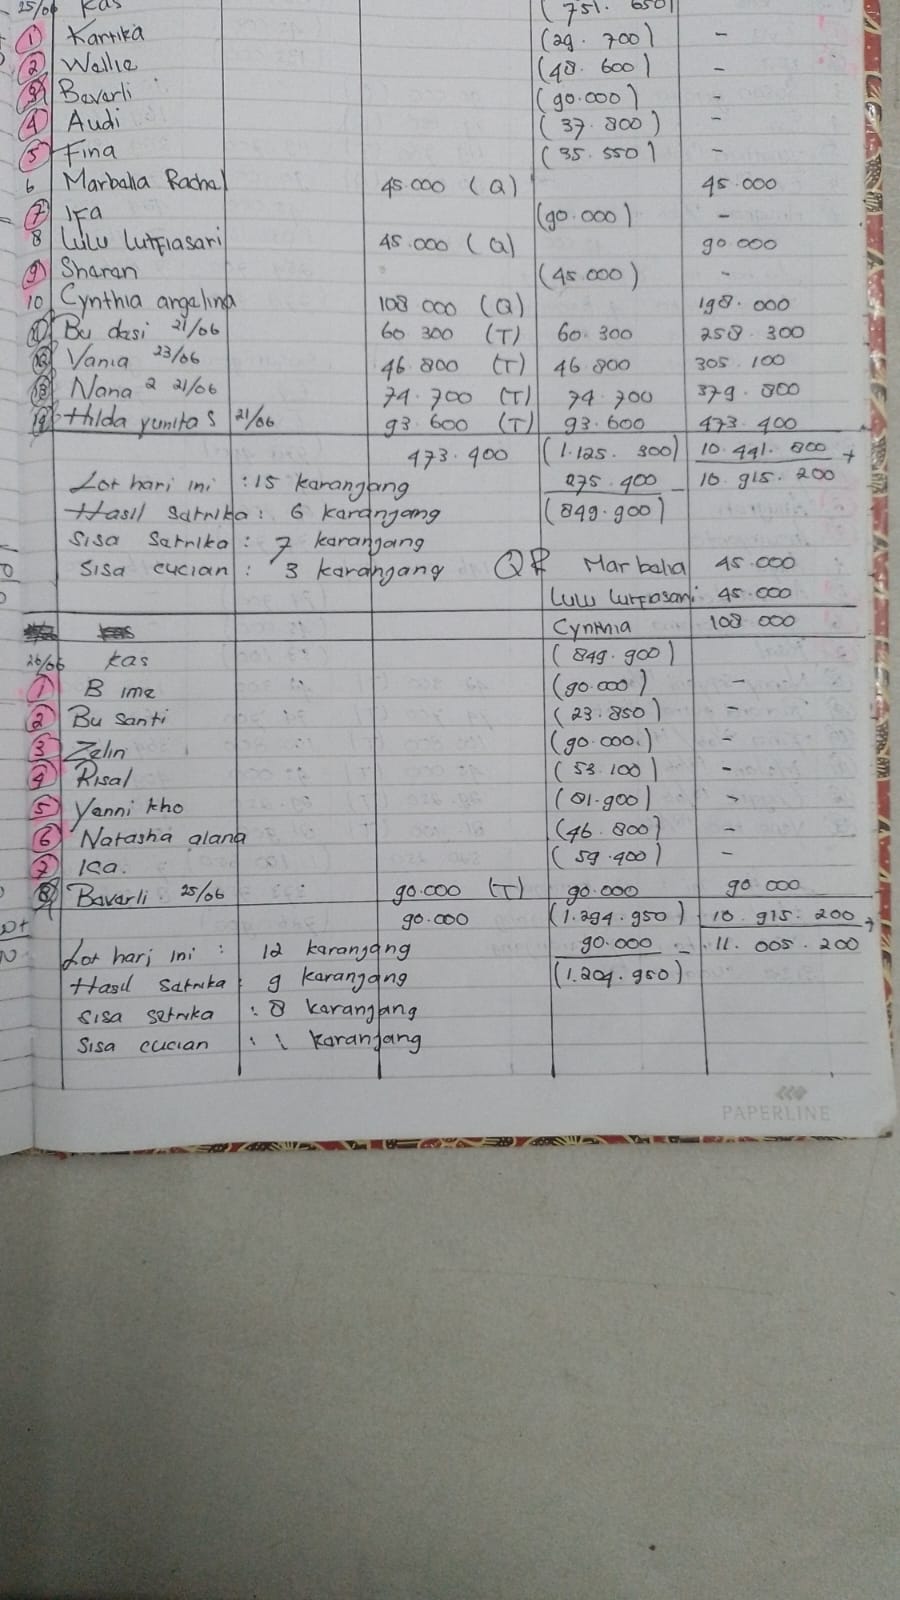 25/06 Kas (751.650)
1 Kartika (29.700) -
2 Wellie (48.600) -
3 Baverli (90.000) -
4 Audi (37.800) -
5 Fina (35.550) -
6 Marbalia Rachel 45.000 (Q) 45.000
7 Ifa (90.000) -
8 Lulu Lutfiasari 45.000 (Q) 90.000
9 Sharen (45.000) -
10 Cynthia angelina 108 000 (Q) 198.000
11 Bu desi 21/06 60 300 (T) 60.300 258.300
12 Vania 23/06 46.800 (T) 46.800 305.100
13 Nana 2 21/06 74.700 (T) 74.700 379.800
14 Hilda yunita S 21/06 93.600 (T) 93.600 473.400
473.400 (1.125.300) 10.441.800 +
Lot hari ini : 15 karangjang 275.400 - 10.915.200
Hasil Satrika : 6 karangjang (849.900)
Sisa Satrika : 7 karangjang
Sisa cucian : 3 karangjang QR Marbalia 45.000
Lulu Lutfiasari 45.000
Cynthia 108 000
26/06 kas (849.900)
1 B ime (90.000) -
2 Bu Santi (23.850) -
3 Zelin (90.000) -
4 Risal (53.100) -
5 Yenni kho (81.900) -
6 Natasha alana (46.800) -
7 Ica. (59.400) -
8 Baverli 25/06 90.000 (T) 90.000 90.000
90.000 (1.294.950) 10.915.200 +
Lot hari ini : 12 karangjang 90.000 - 11.005.200
Hasil Satrika : 9 karangjang (1.204.950)
Sisa setrika : 8 karangjang
Sisa cucian : 1 karangjang
PAPERLINE